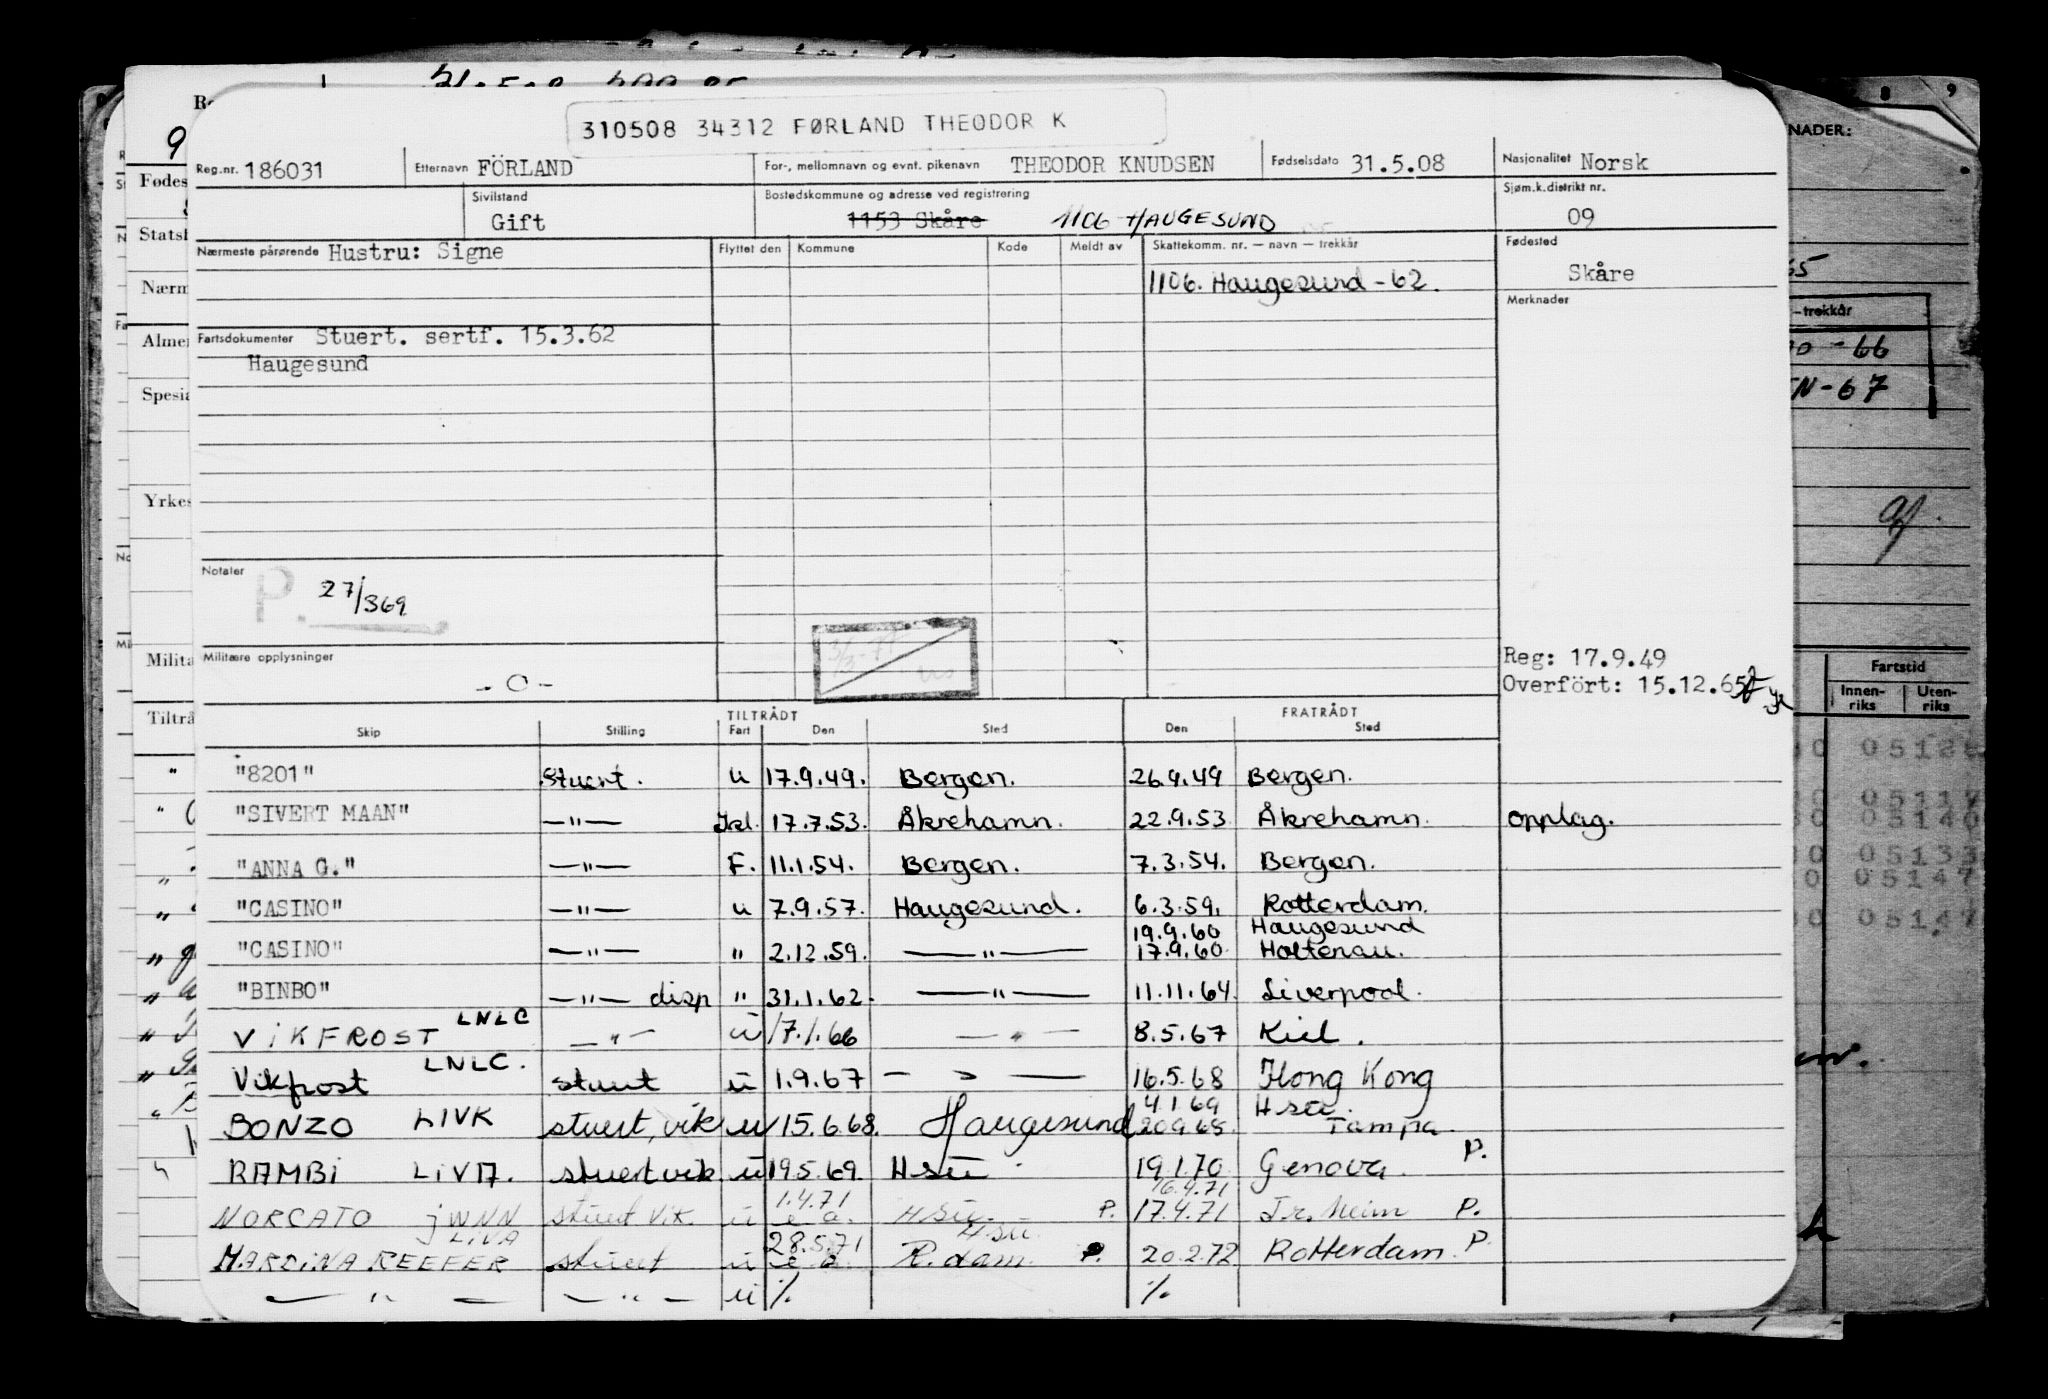 310508 34312 FØRLAND THEODOR K
Reg.nr. 186031 Etternavn FÖRLAND For-, mellomnavn og evnt. pikenavn THEODOR KNUDSEN Fødselsdato 31.5.08 Nasjonalitet Norsk
Sivilstand Gift Bostedskommune og adresse ved registrering 1153 Skåre 1106 HAUGESUND Sjøm.k.distrikt nr. 09
Nærmeste pårørende Hustru: Signe Flyttet den Kommune Kode Meldt av Skattekomm. nr. — navn — trekkår Fødested
1106. Haugesund - 62. Skåre
Merknader
Fartsdokumenter Stuert. sertf. 15.3.62
Haugesund
Notater P. 27/369
Militære opplysninger
- O -
Reg: 17.9.49
Overfört: 15.12.65
TILTRÅDT FRATRÅDT
Skip Stilling Fart Den Sted Den Sted
"8201" Stuert. u 17.9.49. Bergen. 26.9.49 Bergen.
"SIVERT MAAN" —"— Ikl. 17.7.53. Åkrehamn. 22.9.53 Åkrehamn. Opplag.
"ANNA G." —"— F. 11.1.54. Bergen. 7.3.54. Bergen.
"CASINO" —"— u 7.9.57. Haugesund. 6.3.59. Rotterdam.
19.9.60 Haugesund
"CASINO" —"— " 2.12.59. —"— 17.9.60. Holtenau.
"BINBO" —"— disp " 31.1.62. —"— 11.11.64. Liverpool.
VIKFROST LNLC —"— u 17.1.66 —"— 8.5.67 Kiel.
Vikfrost LNLC. stuert u 1.9.67 — " — 16.5.68 Hong Kong
4.1.69 Hsu.
BONZO LIVK stuert, vik u 15.6.68. Haugesund 20.9.68. Tampa.
RAMBI LIVA. stuert vik. u 19.5.69. Hsu 19.1.70 Genova. P.
1.4.71 16.4.71
NORCATO JWNN stuert vik. u e a. Hsu. P. 17.4.71 Tr.heim P.
LIVA 28.5.71 Hsu.
MARDINA REEFER stuert u e a. R.dam. P. 20.2.72 Rotterdam. P.
— " — — " — u %. %.
NADER:
-trekkår
- 66
N - 67
Fartstid
Innen-riks Uten-riks
Fødes
Statsb
Nærm
Almen
Spesia
Yrkes
Milita
Tiltrå